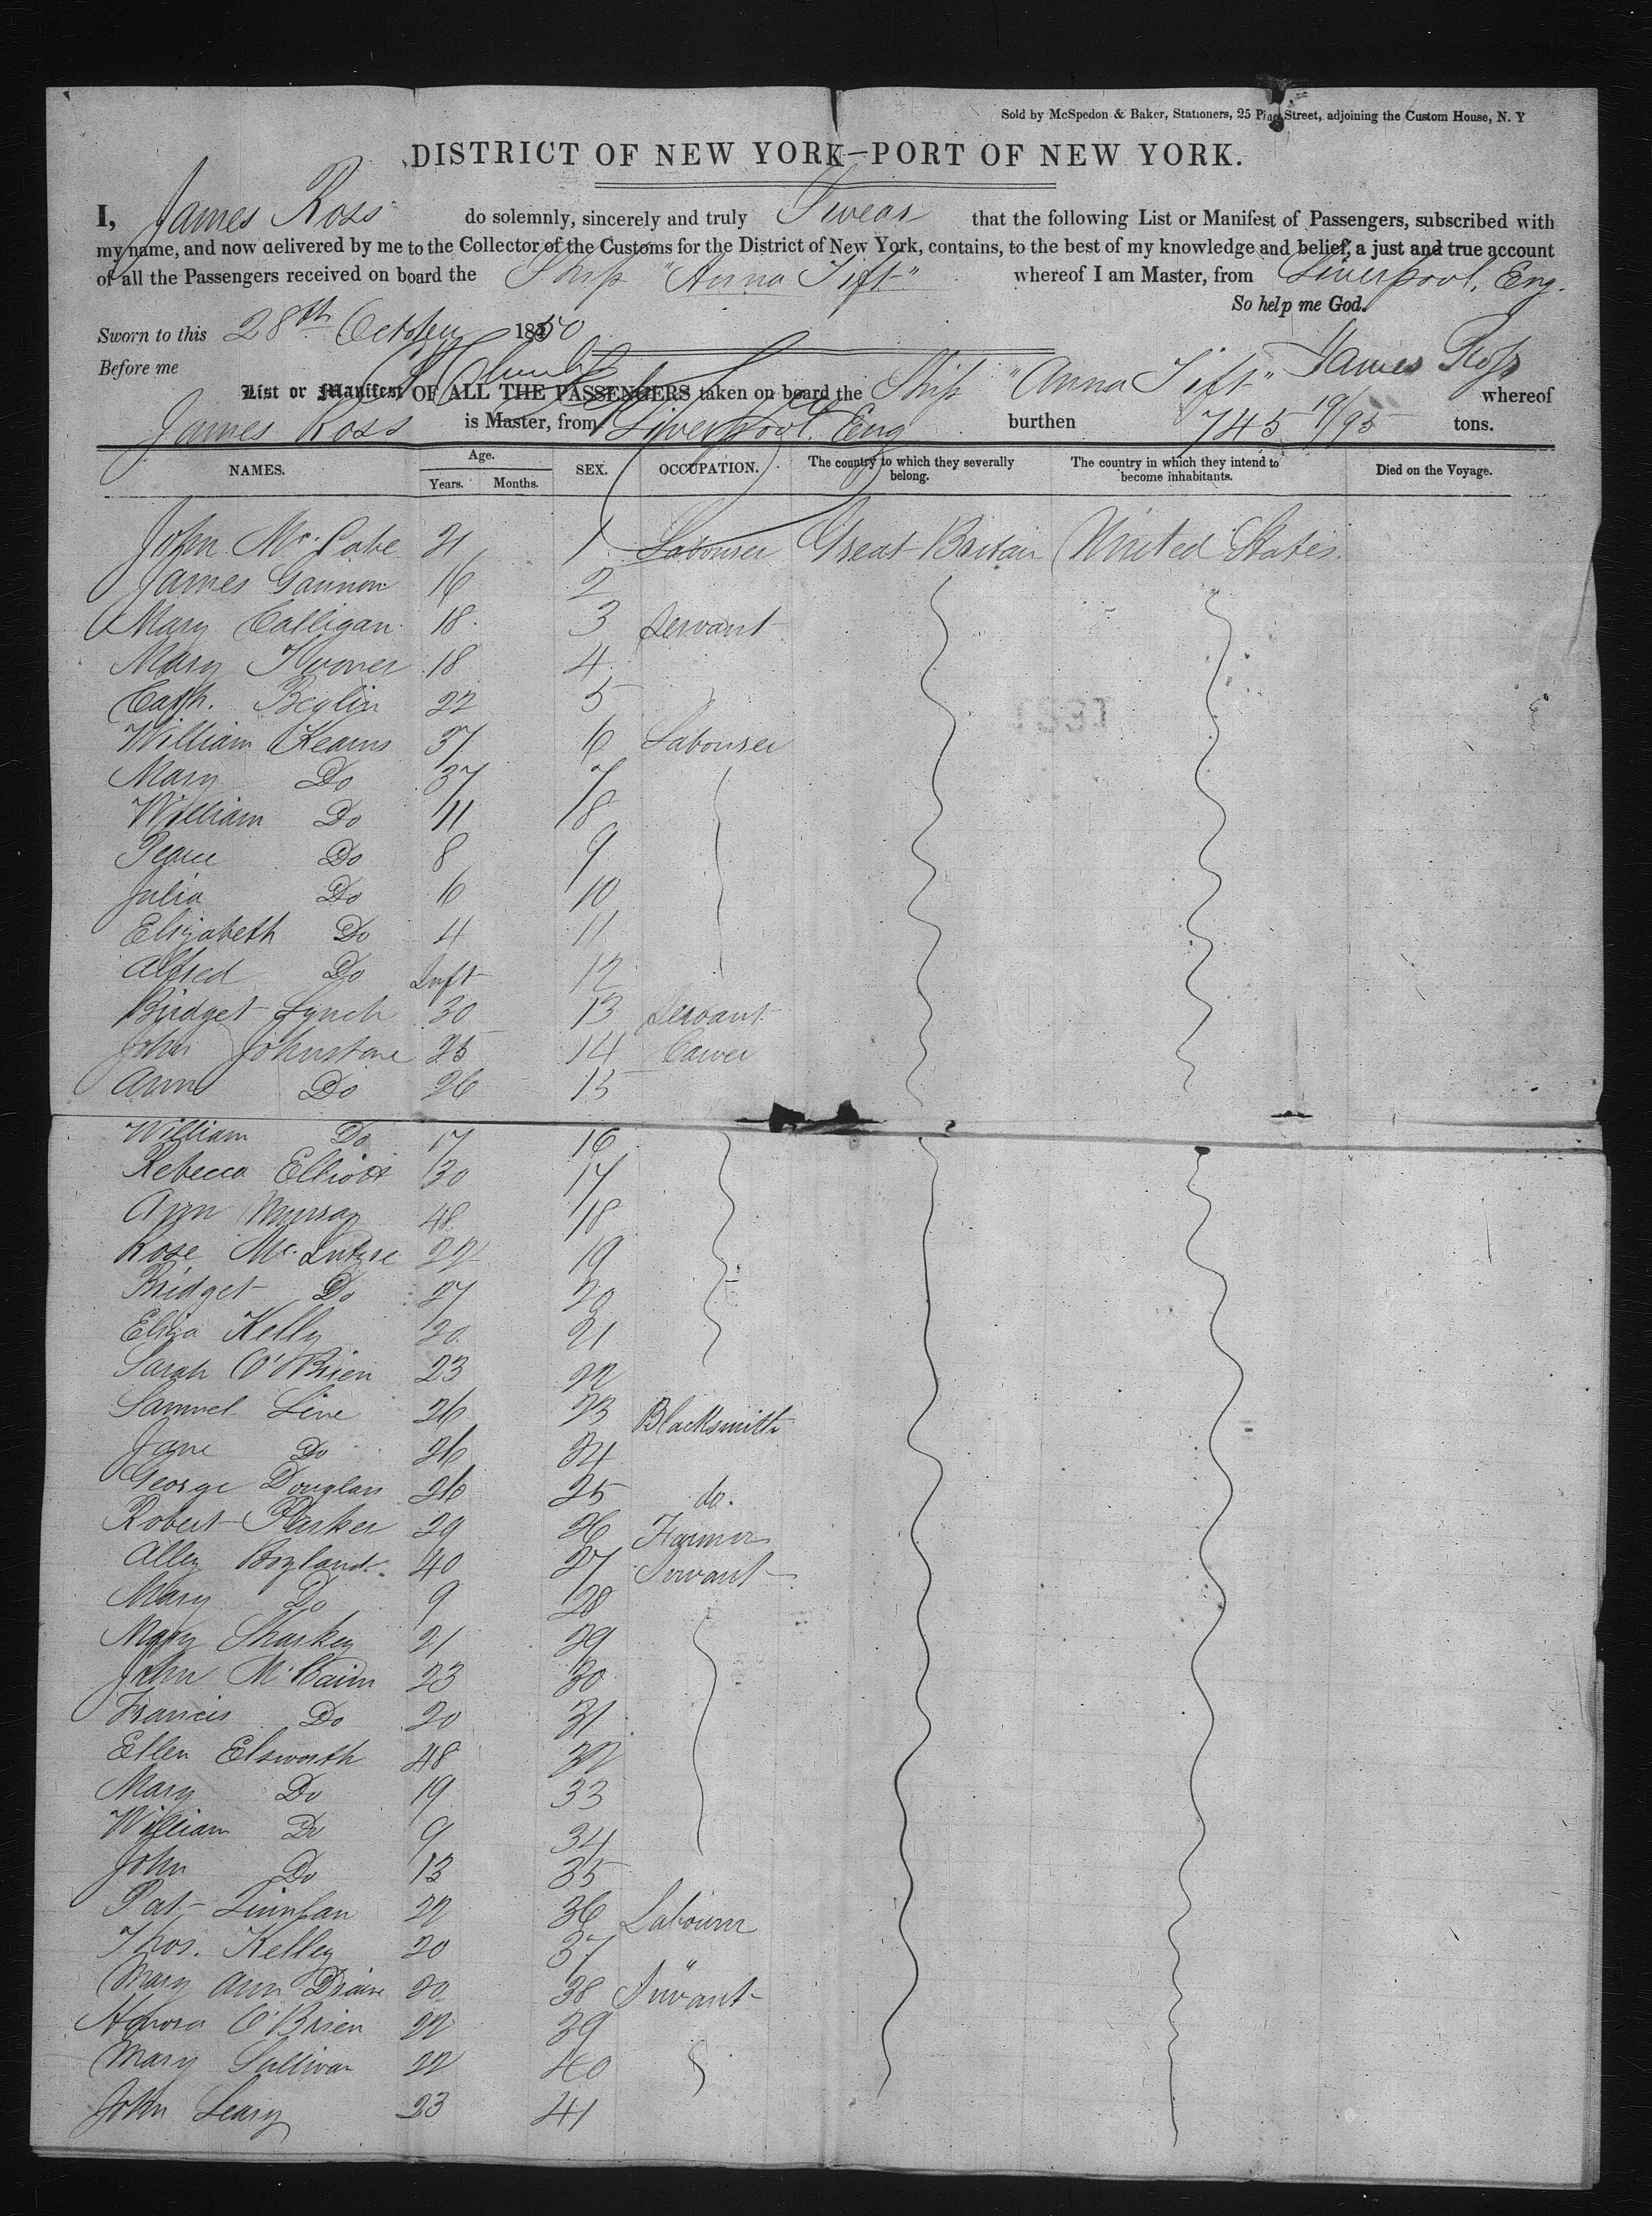 Sold by McSpedon & Baker, Stationers, 25 Pine Street, adjoining the Custom House, N. Y
DISTRICT OF NEW YORK—PORT OF NEW YORK.
I, James Ross do solemnly, sincerely and truly Swear that the following List or Manifest of Passengers, subscribed with
my name, and now delivered by me to the Collector of the Customs for the District of New York, contains, to the best of my knowledge and belief, a just and true account
of all the Passengers received on board the Ship "Anna Tift" whereof I am Master, from Liverpool, Eng.
So help me God.
Sworn to this 28th October 1850
Before me James Ross
List or Manifest OF ALL THE PASSENGERS taken on board the Ship "Anna Tift" whereof
James Ross is Master, from Liverpool, Eng burthen 745 19/95 tons.
NAMES. Age. Years. Months. SEX. OCCUPATION. The country to which they severally belong. The country in which they intend to become inhabitants. Died on the Voyage.
John McCabe 21 1 Labourer Great Britain United States.
James Gannon 16 2
Mary Calligan 18 3 Servant
Mary 18 4
Cath. Beglin 22 5
William Kearns 37 6 Labourer
Mary Do 37 7
William Do 11 8
Pearce Do 8 9
Julia Do 6 10
Elizabeth Do 4 11
Alfred Do Inft 12
Bridget Lynch 30 13 Servant
John Johnstone 25 14
Ann Do 26 15
William Do 17 16
Rebecca Elliott 30 17
Ann Murray 48 18
Rose McIntyre 22 19
Bridget Do 27 20
Eliza Kelly 20 21
Sarah O'Brien 23 22
Samuel Line 26 23 Blacksmith
Jane Do 26 24
George Douglass 26 25 do.
Robert Parker 29 26 Farmer
Alley Boyland 40 27 Servant
Mary Do 9 28
Mary Sharkey 21 29
John McCairn 23 30
Francis Do 20 31
Ellen Elsworth 48 32
Mary Do 19 33
William Do 9 34
John Do 13 35
Pat 22 36 Labourer
Thos. Kelley 20 37 "
Mary Ann 20 38 Servant
Honora O'Brien 22 39
Mary Sullivan 22 40
John Leary 23 41